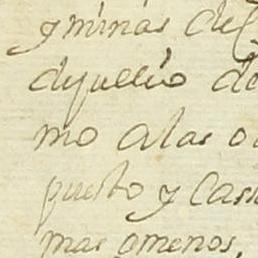 y minas del
de
mo alas o
puesto y Casi
mas omenos,